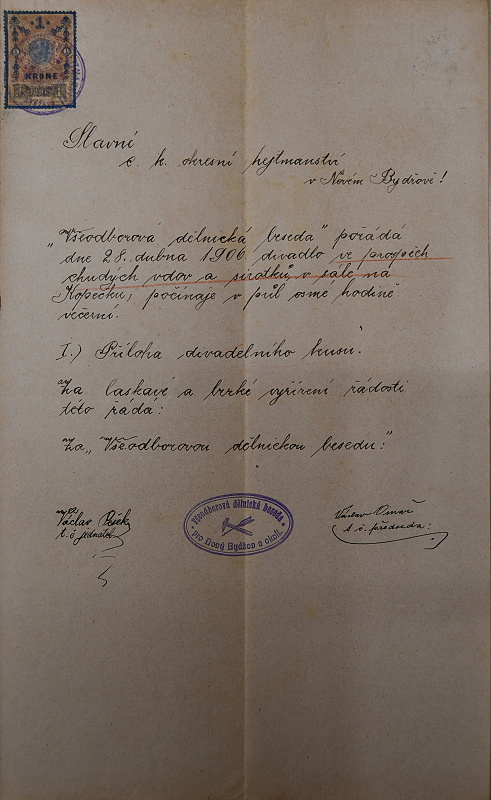 1
KRONE
Slavné
c. k. okresní hejtmanství
v Novém Bydžově!
„Všeodborová dělnická beseda" pořádá
dne 28. dubna 1906. divadlo ve prospěch
chudých vdov a sirotků, v sále na
Kopečku, počínaje v půl osmé hodině
večerní.
I.) Příloha divadelního kusu.
Za laskavé a brzké vyřízení žádosti
této žádá:
Za „Všeodborovou dělnickou besedu:"
Václav
t. č. jednatel
Všeodborová dělnická beseda
pro Nový Bydžov a okolí.
Václav
t. č. předseda: